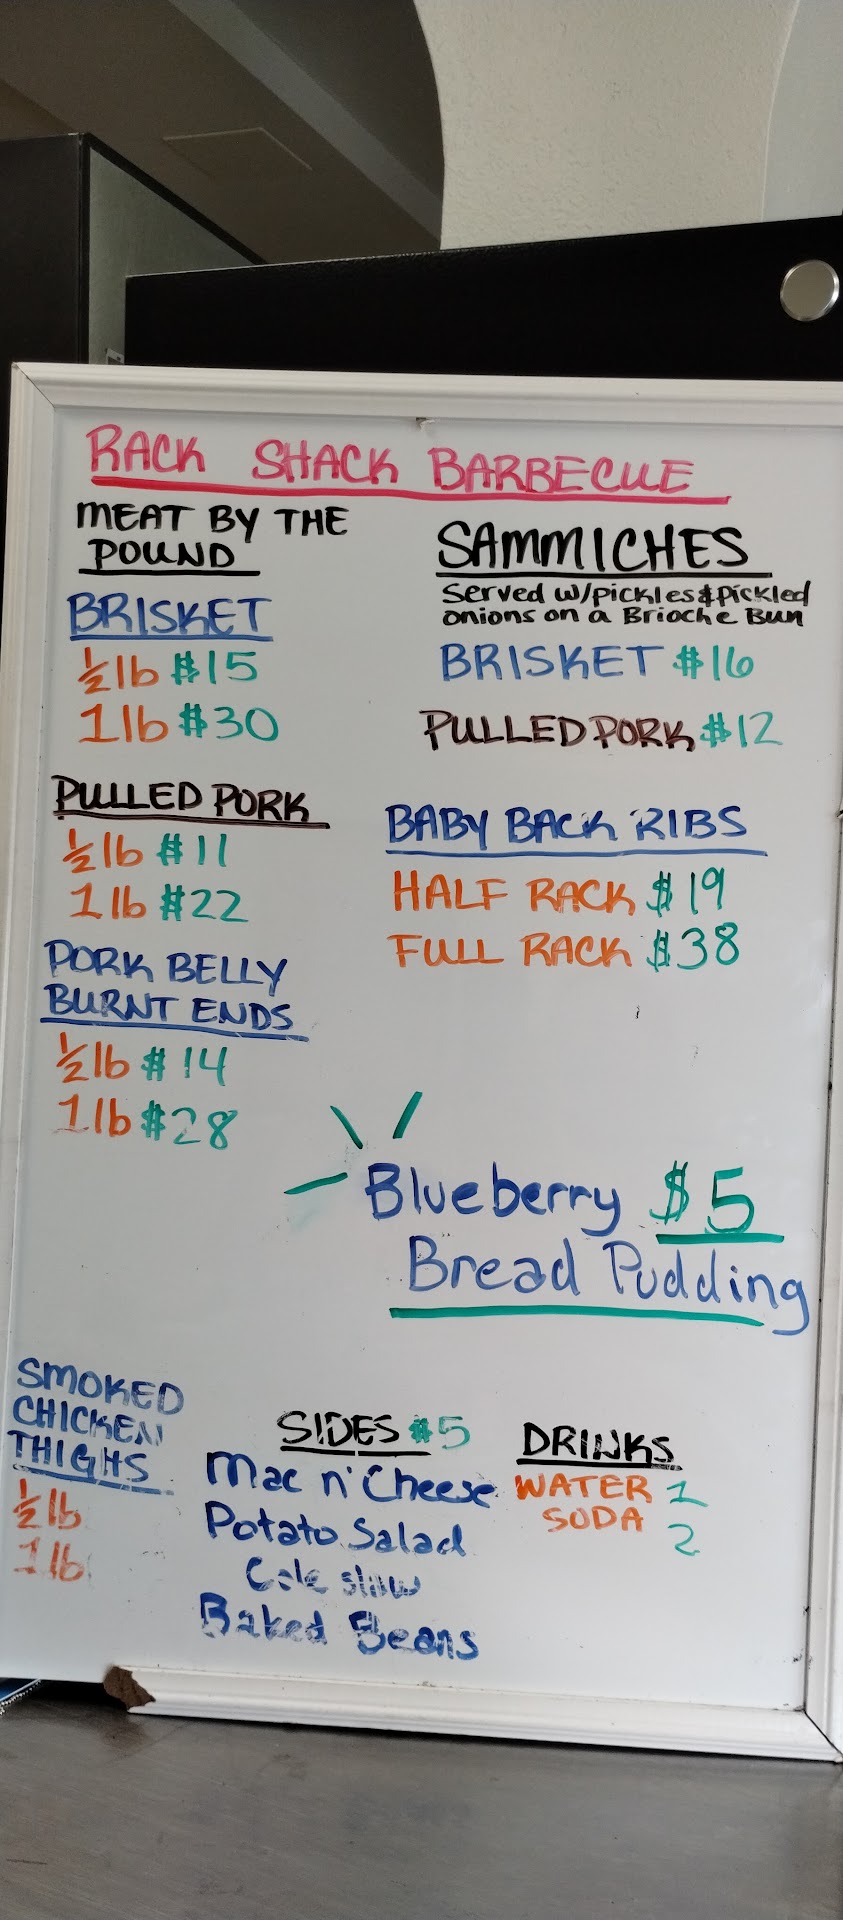 RACK SHACK BARBECUE
MEAT BY THE
POUND
BRISKET
½ lb $15
1 lb $30
PULLED PORK
½ lb $11
1 lb $22
PORK BELLY
BURNT ENDS
½ lb $14
1 lb $28
SAMMICHES
Served w/pickles & pickled
onions on a Brioche Bun
BRISKET $16
PULLED PORK $12
BABY BACK RIBS
HALF RACK $19
FULL RACK $38
Blueberry $5
Bread Pudding
SMOKED
CHICKEN
THIGHS
½ lb
1 lb
SIDES $5
Mac n' Cheese
Potato Salad
Cole slaw
Baked Beans
DRINKS
WATER 1
SODA 2